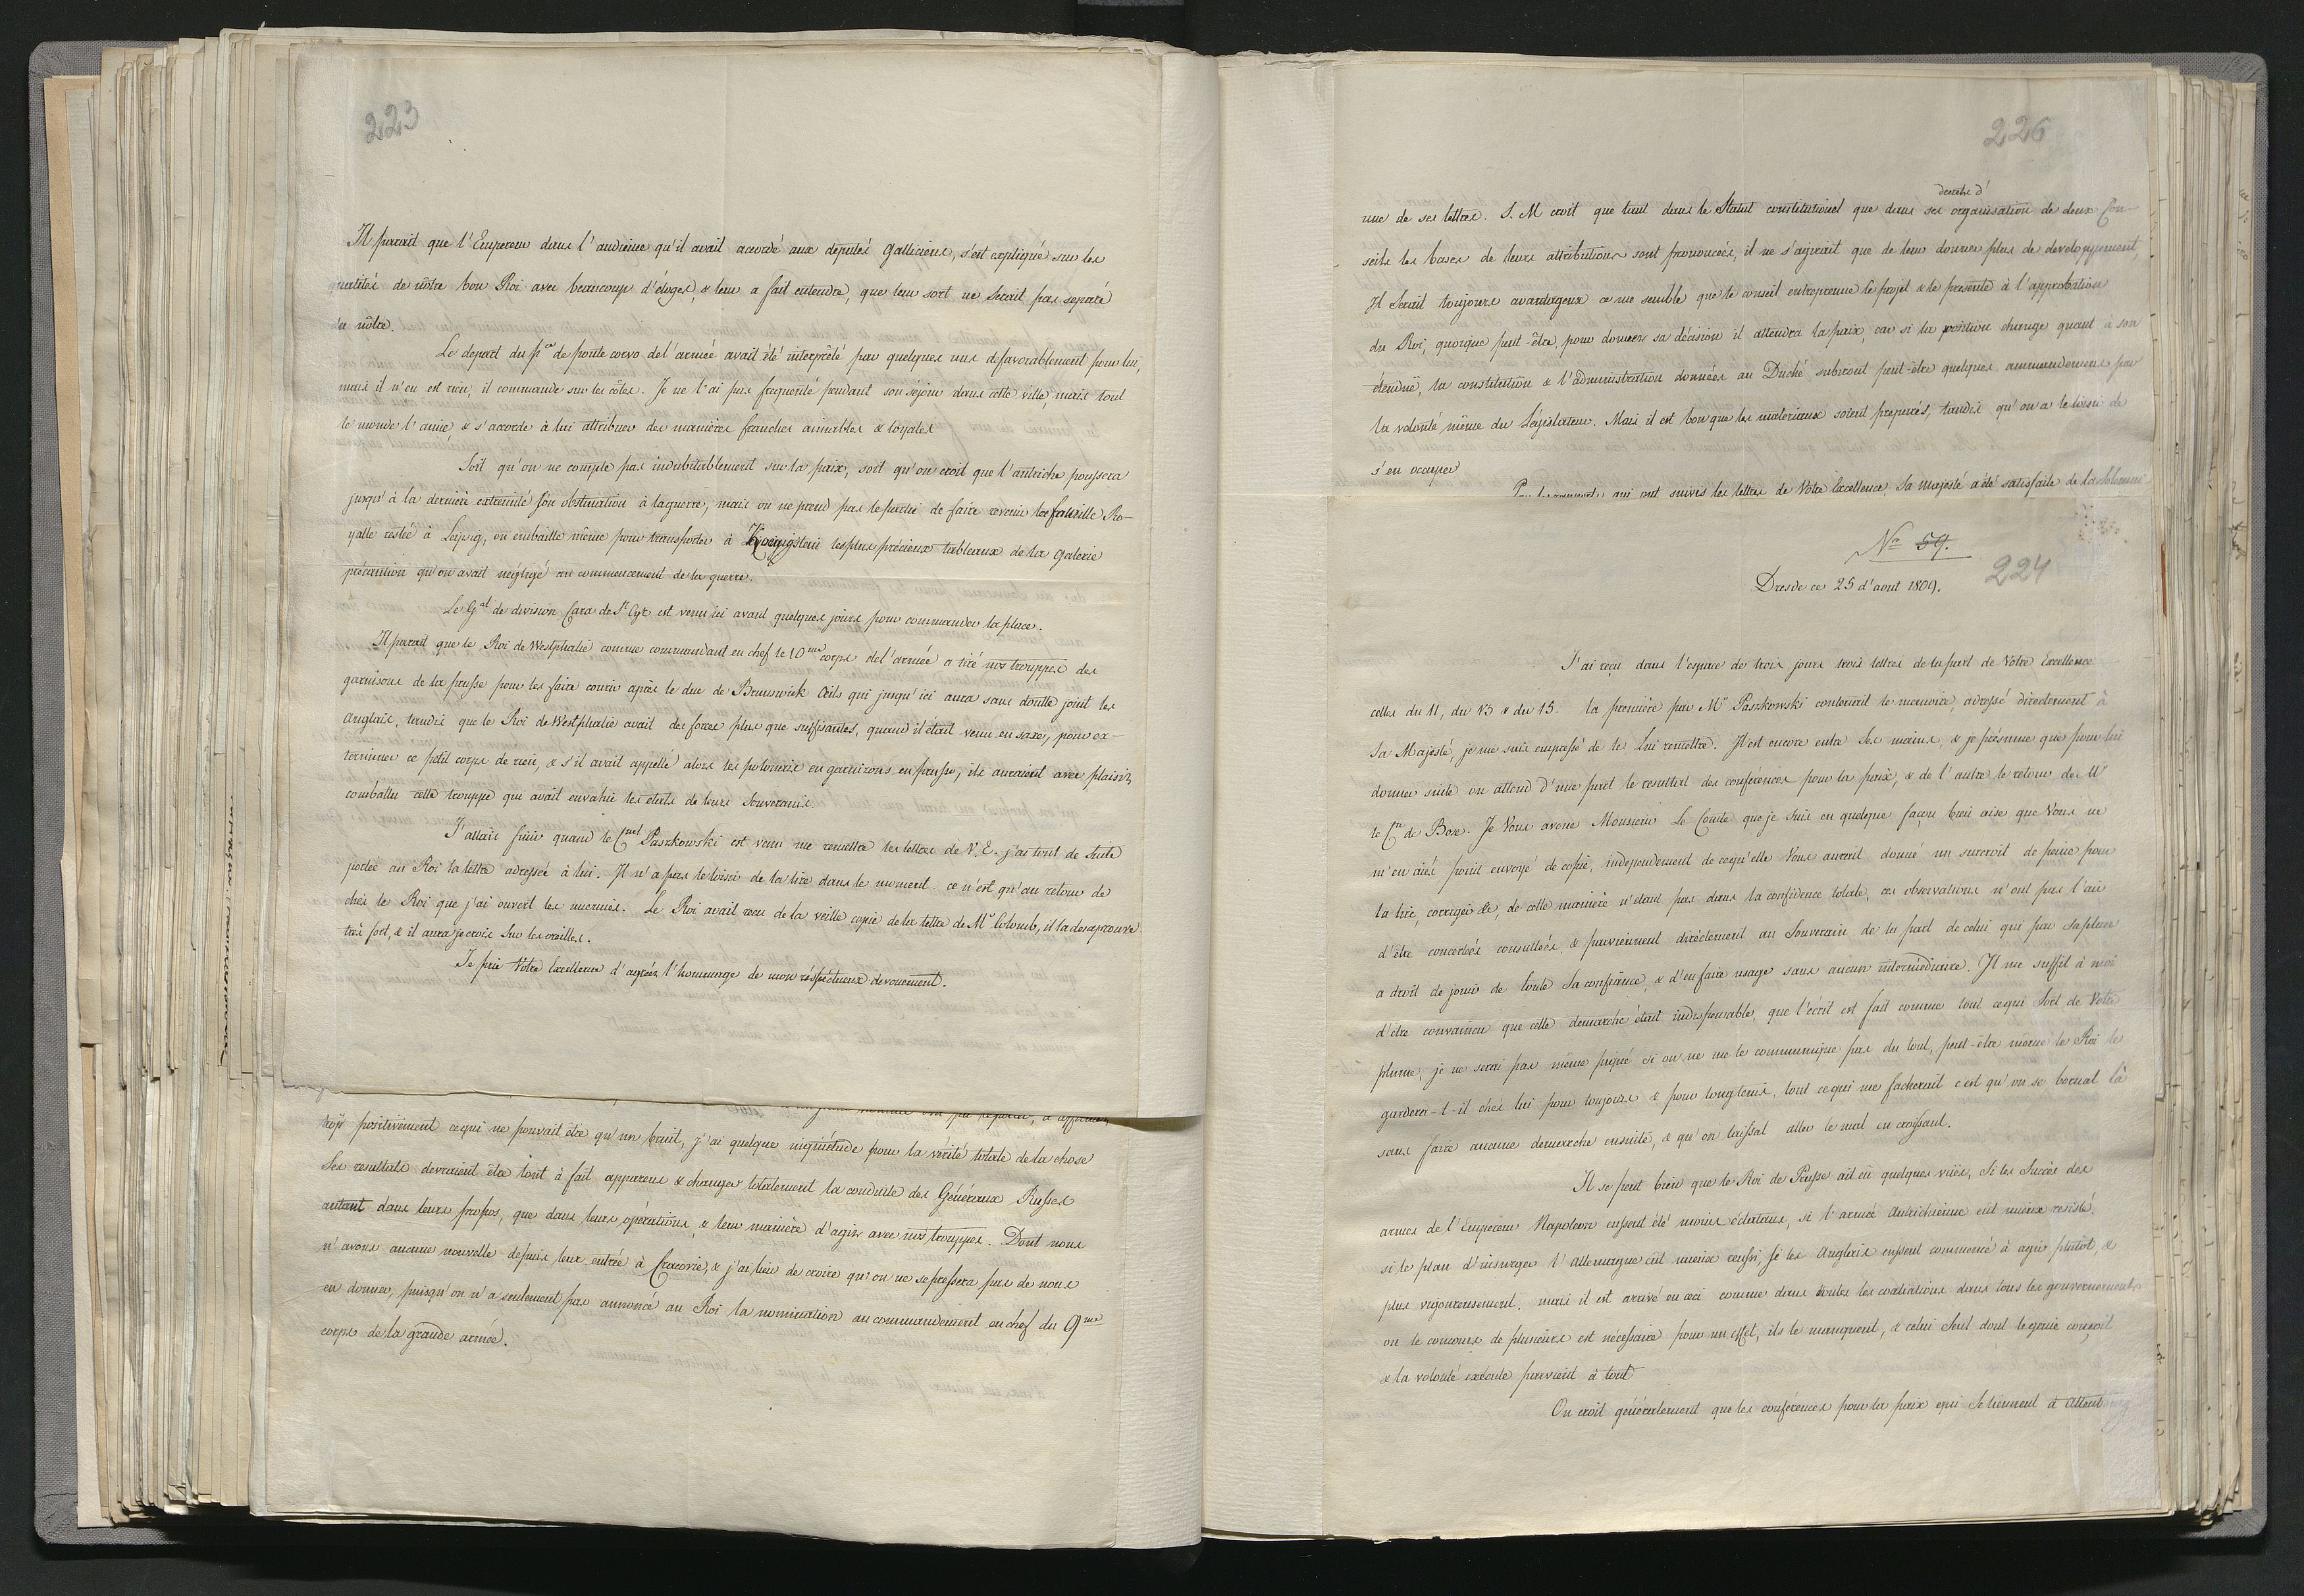 223
Il parrait que l'Empereur dans l'audience qu'il avait accordé aux deputés Galliciens, s'est expliqué sur les
qualités de nôtre bon Roi avec beaucoup d'éloges, & leur a fait entendre, que leur sort ne serait pas separé
du nôtre.
Le depart du pce de ponte corvo de l'armée avait été interprêté par quelques uns défavorablement pour lui,
mais il n'en est rien, il commande sur les côtes. Je ne l'ai pas frequenté pendant son séjour dans cette ville, mais tout
le monde l'aime & s'accorde à lui attribuer des manières franches aimables & loyales
Soit qu'on ne compte pas indubitablement sur la paix, soit qu'on croit que l'autriche poussera
jusqu'à la dernière extremité son obstination à la guerre, mais on ne prend pas le parti de faire revenir la famille Ro-
yalle restée à Leipzig, on emballe même pour transporter à Koenigstein les plus précieux tableaux de la Galerie
précaution qu'on avait negligé au commencement de la guerre.
Le Gal de division Cara de St Cyr est venu ici avant quelques jours pour commander la place.
Il parrait que le Roi de Westphalie comme commandant en chef le 10me corps de l'armée a tiré nos trouppes des
garnisons de la prusse pour les faire courir après le duc de Brunswick Oels qui jusqu'ici aura sans doutte joint les
Anglais, tandis que le Roi de Westphalie avait des forces plus que suffisantes, quand il était venu en saxe, pour ex-
terminer ce petit corps de rien, & s'il avait appellé alors les polonais en garnisons en prusse, ils auraient avec plaisir
combattu cette trouppe qui avait envahie les etats de leurs souverains.
J'allais finir quand le Cnel Paszkowski est venu me remettre les lettres de V. E. j'ai tout de suite
portée au Roi la lettre adressée à lui. Il n'a pas le loisir de la lire dans le moment. ce n'est qu'au retour de
chés le Roi que j'ai ouvert les miennes. Le Roi avait recu de la veille copie de la lettre de Mr Colomb, il la desaprouve
très fort, & il aura je crois sur les oreilles.
Je prie Votre Excellence d'agréer l'hommage de mon réspéctueux devouement.
trop positivement ce qui ne pouvait être qu'un bruit, j'ai quelque inquiétude pour la vérité totale de la chose
Les resultats devraient être tout à fait apparens & changer totalement la conduite des Généraux Russes
autant dans leurs propos, que dans leurs opérations, & leur manière d'agir avec nos trouppes. Dont nous
n'avons aucune nouvelle depuis leur entrée à Cracovie, & j'ai lieu de croire qu'on ne se pressera pas de nous
en donner, puisqu'on n'a seulement pas annoncé au Roi la nomination au commandement en chef du 9me
corps de la grande armée.
226
une de ses lettres. S. M croit que tant dans le Statut constitutionel que dans ses organisation de deux Con-
seils les bases de leurs attributions sont prononcées, il ne s'agirait que de leur donner plus de developpement,
Il serait toujours avantageux ce me semble que le conseil entreprenne le projet & le présente à l'approbation
du Roi, quoique peut-être, pour donner sa décision il attendra la paix, car si la position change quant à son
étenduë, la constitution & l'administration données au Duché subiront peut-être quelques ammandemens par
la volonté même du Législateur. Mais il est bon que les materiaux soient preparés, tandis qu'on a le loisir de
s'en occuper
qui ont suivis les lettres de Votre Excellence, Sa Majesté a été satisfaite de
No 59.
224
Dresde ce 25 d'aout 1809.
J'ai reçu dans l'espace de trois jours trois lettres de la part de Votre Excellence
celles du 11, du 13 & du 15. la première par Mr Paszkowski contenait le memoire, adressé directement à
Sa Majesté, je me suis empressé de le Lui remettre. Il est encore entre Ses mains, & je présume que pour lui
donner suite on attend d'une part le resultat des conférences pour la paix, & de l'autre le retour de Mr
le Cte de Bose. Je Vous avoue Monsieur Le Comte que je suis en quelque façon bien aise que Vous ne
m'en aiés point envoyé de copie, independement de ce qu'elle Vous aurait donné un surcroit de peine pour
la lire, corriger &c, de cette manière n'etant pas dans la confidence totale, ces observations n'ont pas l'air
d'être concertées consultées, & parviennent diréctement au Souverain de la part de celui qui par sa place
a droit de jouir de toute Sa confiance, & d'en faire usage sans aucun intermédiaire. Il me suffit à moi
d'être convaincu que cette demarche était indispensable, que l'écrit est fait comme tout ce qui sort de Votre
plume, je ne serai pas même piqué si on ne me le communique pas du tout, peut-être meme le Roi le
gardera-t-il chés lui pour toujours & pour longtems, tout ce qui me facherait c'est qu'on se bornat là
sans faire aucune demarche ensuite, & qu'on laissat aller le mal en croissant.
Il se peut bien que le Roi de Prusse ait eû quelques vuës, Si les Succès des
armes de l'Empereur Napoleon eussent été moins éclatans, si l'armée Autrichienne eût mieux resisté,
si le plan d'insurger l'Allemagne eût mieux reussi, si les Anglais eussent commencé à agir plutôt, &
plus vigoureusement, mais il est arrivé en ceci comme dans toutes les coaliations dans tous les gouvernements
ou le concours de plusieurs est nécessaire pour un effet, ils le manquent, & celui Seul dont le genie conçoit
& la volonté exécute parvient à tout
On croit généralement que les conférences pour la paix qui se tiennent à Altenbourg